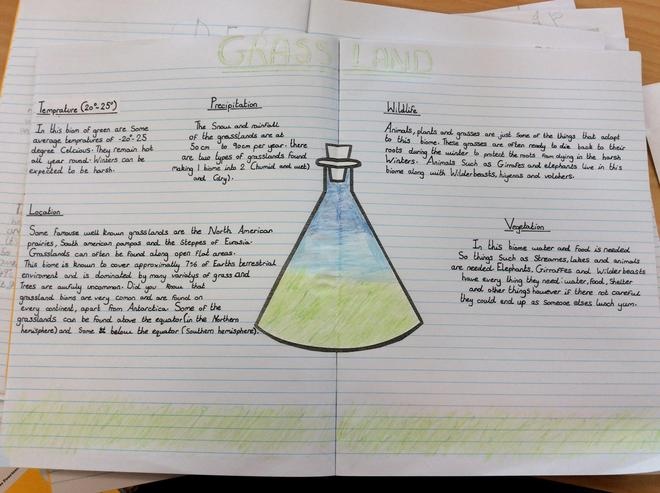 GRASS LAND
Temprature (20°-25°)
In this biom of green are Some
average tempratures of -20°-25
degree Celcious. They remain hot
all year round. Winters can be
expected to be harsh.
Precipitation
The Snow and rainfall
of the grasslands are at
50cm to 90cm per year. there
are two types of grasslands found
making 1 biome into 2 (humid and wet)
and (dry).
Location
Some famouse well known grasslands are the North American
prairies, South american pampas and the Steppes of Eurasia.
Grasslands can often be found along open flat areas.
This biome is known to cover approximatly 7% of Earths terrestrial
enviroment and is dominated by many variatys of grass and
Trees are awfully uncommon. Did you know that
grassland bioms are very comon and are found on
every continent, apart from Antarctica. Some of the
grasslands can be found above the equator (in the Northern
hemisphere) and Some below the equator (Southern hemisphere).
Wildlife
Animals, plants and grasses are just some of the things that adapt
to this biome. These grasses are often ready to die back to their
roots during the winter to protect the roots from dying in the harsh
Winters. Animals Such as Giraffes and elephants live in this
biome along with Wilderbeasts, hyienas and
Vegetation
In this biome water and food is needed
So things Such as Streames, lakes and animals
are needed. Elephants, Girraffes and Wilderbeasts
have every thing they need: water, food, Shelter
and other things however if there not careful
they could end up as Someone elses lunch yum.